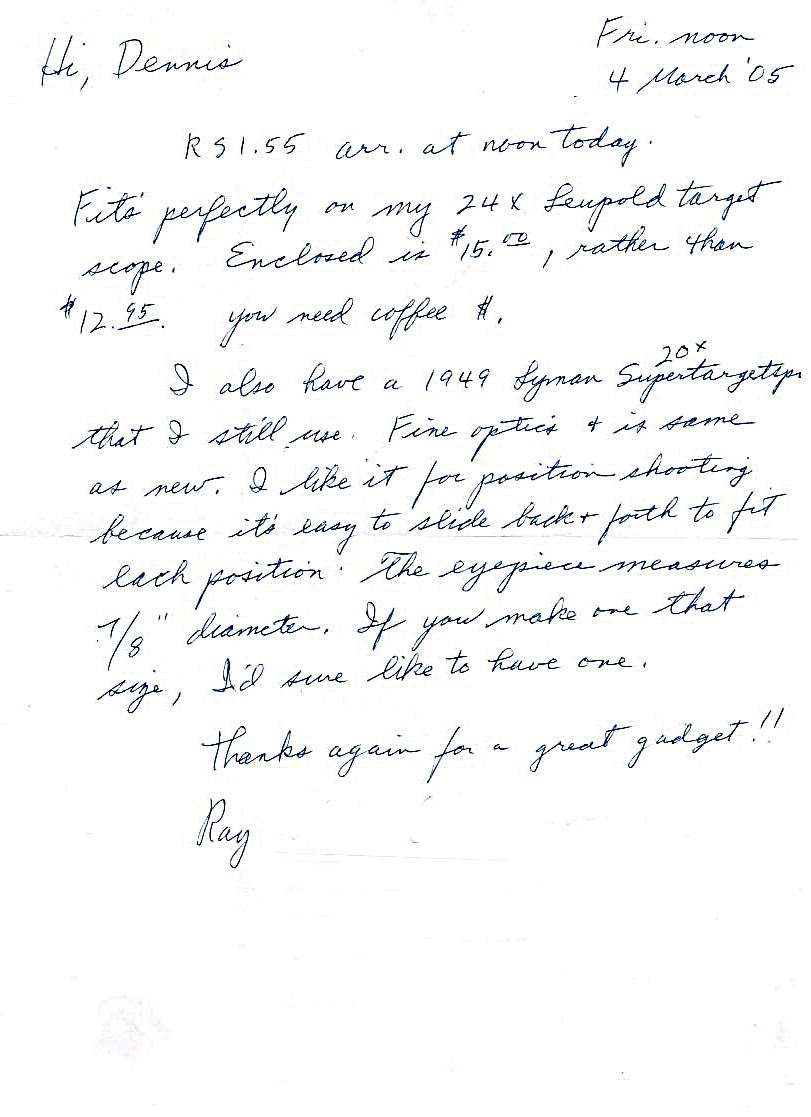 Fri. noon
Hi, Dennis
4 March '05
RS1.55 arr. at noon today.
Fits perfectly on my 24X Leupold target
scope. Enclosed is $15.00, rather than
$12.95. You need coffee $.
20x
I also have a 1949 Lyman Supertargetspo
that I still use. Fine optics + is same
as new. I like it for position shooting
because it's easy to slide back + forth to fit
each position. The eyepiece measures
7/8" diameter. If you make one that
size, I'd sure like to have one.
Thanks again for a great gadget!!
Ray